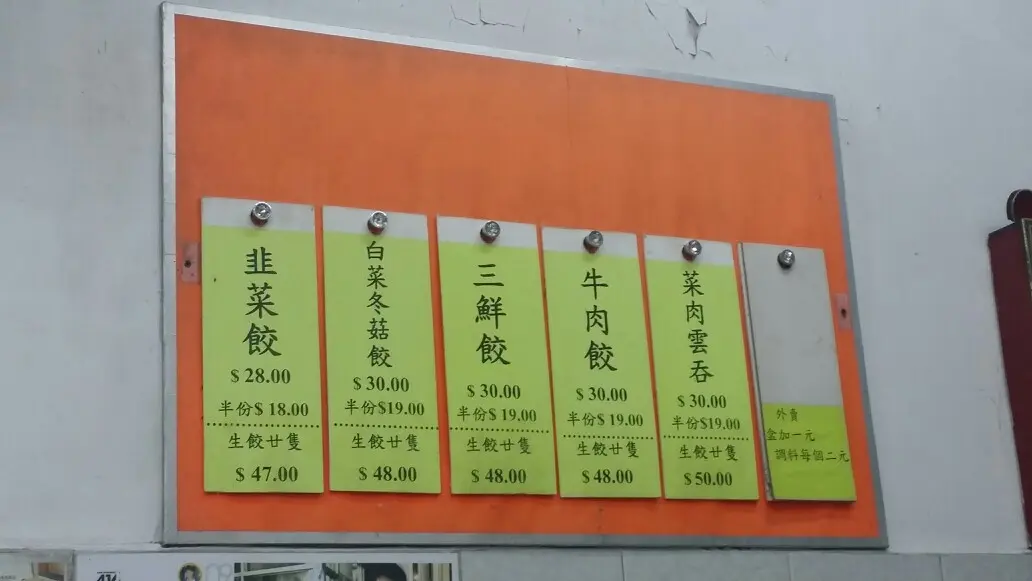 韭菜餃
$ 28.00
半份$ 18.00
生餃廿隻
$ 47.00
白菜冬菇餃
$ 30.00
半份$19.00
生餃廿隻
$ 48.00
三鮮餃
$ 30.00
半份$ 19.00
生餃廿隻
$ 48.00
牛肉餃
$ 30.00
半份$ 19.00
生餃廿隻
$ 48.00
菜肉雲吞
$ 30.00
半份$19.00
生餃廿隻
$ 50.00
外賣
盒加一元
調料每個二元